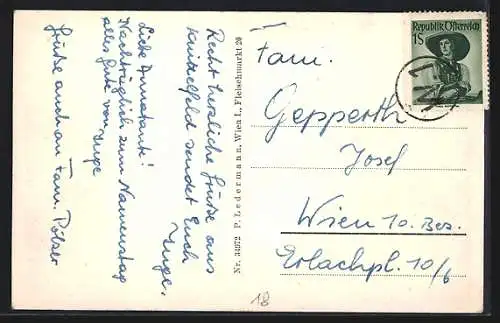 Recht herzliche Grüße aus
Knittelfeld sendet Euch
Inge.
Liebe Annatant!
Nachträglich zum Namenstag
alles Gute von Inge
Grüße auch an Fam. Pölzer
Nr. 34072 P. Ledermann, Wien I., Fleischmarkt 20
Republik Österreich
1S
Fam.
Gepperth
Josef
Wien 10. Bez.
Erlachpl. 10/6
18